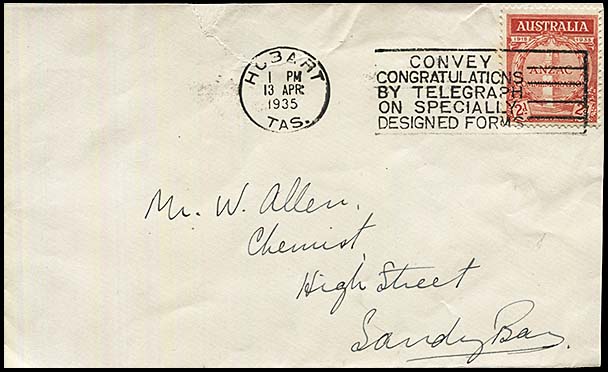 HOBART
1 PM
13 APR
1935
TAS.
CONVEY
CONGRATULATIONS
BY TELEGRAPH
ON SPECIALLY
DESIGNED FORMS
AUSTRALIA
1915 1935
ANZAC
2D 2D
Mr. W. Allen.
Chemist,
High Street
Sandy Bay.